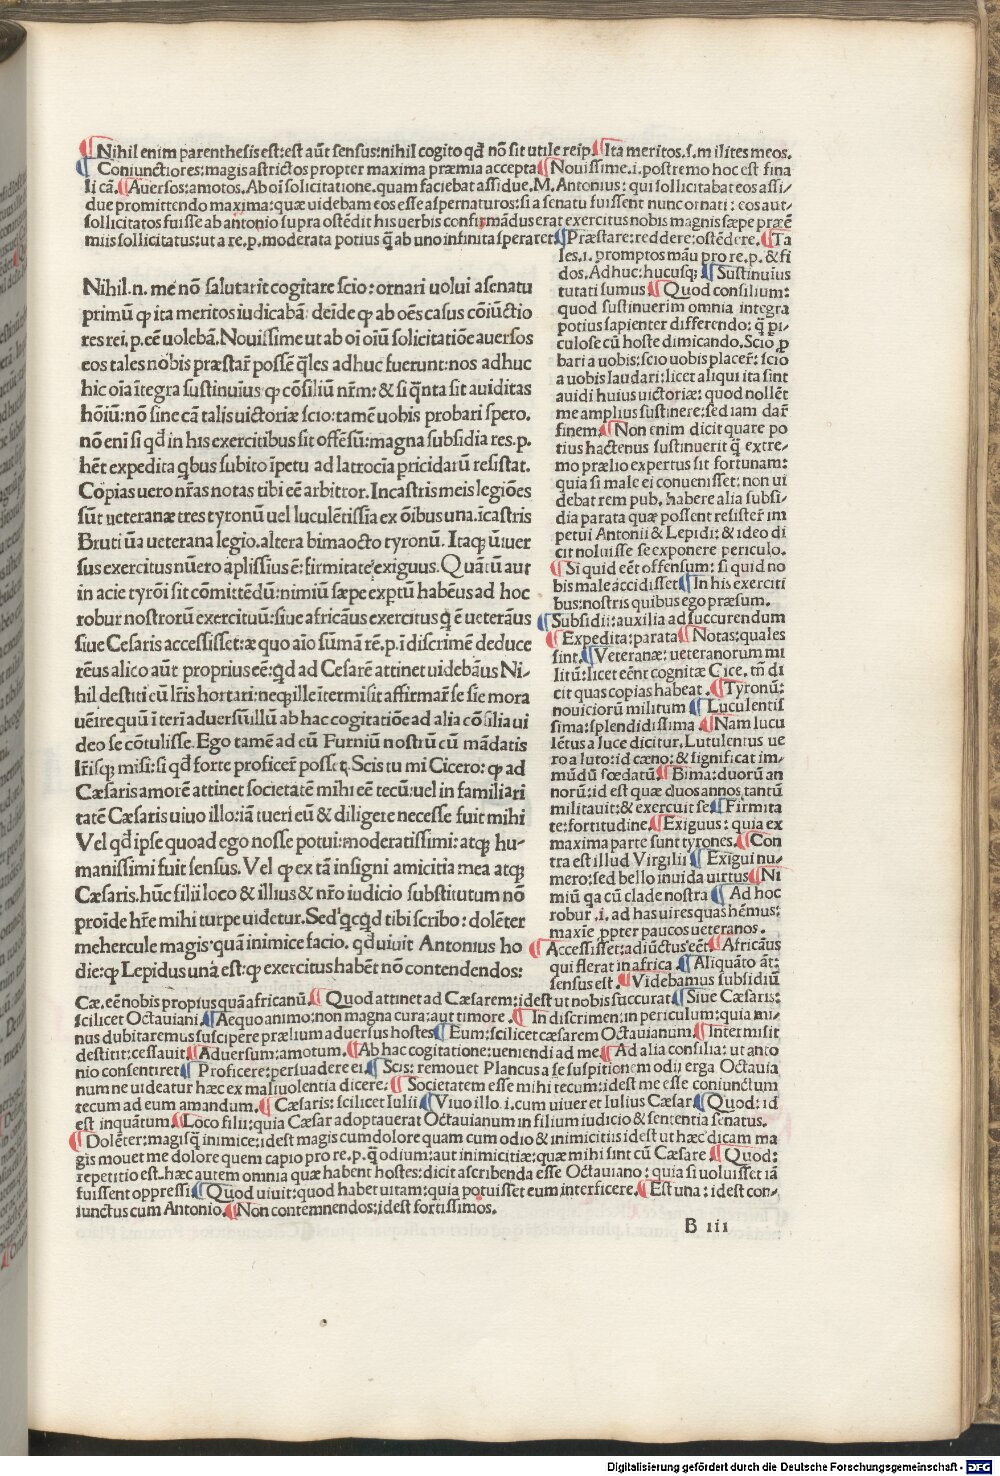 ¶ Nihil enim parenthesis est: est aūt sensus: nihil cogito qđ nō sit utile reip. ¶ Ita meritos .s. milites meos.
¶ Coniunctiores: magis astrictos propter maxima præmia accepta ¶ Nouissime .i. postremo hoc est fina
li cā. ¶ Auersos: amotos. Ab oī solicitatione. quam faciebat assidue. M. Antonius: qui sollicitabat eos assi/
due promittendo maxima: quæ uidebam eos esse aspernaturos: si a senatu fuissent nunc ornati: eos aut̄
sollicitatos fuisse ab antonio supra ostēdit his uerbis confirmandus erat exercitus nobis magnis sæpe præē
miis sollicitatus: ut a re .p. moderata potius q̄ ab uno infinita speraret ¶ Præstare: reddere: ostēdere. ¶ Ta
les .i. promptos māu pro re .p. & fi
dos. Ad huc: hucusq; ¶ Sustinuius
tutati sumus ¶ Quod consilium:
quod sustinuerim omnia integra
potius sapienter differendo: q̄ pi/
culose cū hoste dimicando. Scio p
bari a uobis: scio uobis placer̄: scio
a uobis laudari: licet aliqui ita sint
auidi huius uictoriæ: quod nollēt
me amplius sustinere: sed iam dar̄
finem. ¶ Non enim dicit quare po
tius hactenus sustinuerit q̄ extre/
mo prælio expertus sit fortunam:
quia si male ei conuenisset: non ui
debat rem pub. habere alia subsi/
dia parata quæ possent resister̄ im
petui Antonii & Lepidi: & ideo di
cit noluisse se exponere periculo.
¶ Si quid eēt offensum: si quid no
bis male accidisset ¶ In his exerciti
bus: nostris quibus ego præsum.
¶ Subsidii: auxilia ad succurendum
¶ Expedita: parata ¶ Notas: quales
sint. ¶ Veteranæ: ueteranorum mi
litū: licet eēnt cognitæ Cice. tn̄ di
cit quas copias habeat. ¶ Tyronū:
nouiciorū militum ¶ Luculentis
sima: splendidissima ¶ Nam lucu
lētus a luce dicitur. Lutulentus ue
ro a luto: id cæno: & significat im/
mūdū fœdatū ¶ Bima: duorū an
norū: id est quæ duos annos tantū
militauit: & exercuit se ¶ Firmita
te: fortitudine. ¶ Exiguus: quia ex
maxima parte sunt tyrones. ¶ Con
tra est illud Virgilii ¶ Exigui nu/
mero: sed bello inuida uirtus ¶ Ni
miū q̄a cū clade nostra ¶ Ad hoc
robur .i. ad has uires quas hēmus:
maxīe ppter paucos ueteranos.
¶ Accessisset: adiūctus eēt. ¶ Africāus
qui flerat in africa. ¶ Aliquāto āt:
sensus est. ¶ Videbamus subsidiū
Nihil .n. me nō salutarit cogitare scio: ornari uolui a senatu
primū qꝫ ita meritos iudicabā: deīde qꝫ ab oēs casus cōiūctio
res rei .p. eē uolebā. Nouissime ut ab oī oiū solicitatiōe auersos
eos tales nobis præstar̄ possē q̄les adhuc fuerunt: nos adhuc
hic oīa īntegra sustinuius qꝫ cōsiliū nr̄m: & si q̄nta sit auiditas
hōiū: nō sine cā talis uictoriæ scio: tamē uobis probari spero.
nō eni si qđ in his exercitibus sit offēsū: magna subsidia res .p.
hēt expedita qbus subito īpetu ad latrocīa pricidarū resistat.
Copias uero nr̄as notas tibi eē arbitror. In castris meis legiōes
sūt ueteranæ tres tyronū uel luculētissia ex ōibus una. ī castris
Bruti ūa ueterana legio. altera bima octo tyronū. Itaq; ūiuer
sus exercitus nūero āplissius ē: firmitate exiguus. Quātū aut
in acie tyrōi sit cōmittēdū: nimiū sæpe exptū habēus ad hoc
robur nostrorū exercituū: siue africāus exercitus q ē ueterāus
siue Cesaris accessisset: æquo aīo sūmā rē .p. ī discrimē deduce
rēus alico aūt proprius eē: qđ ad Cesarē attinet uidebāus Ni/
hil destiti eū lr̄is hortari: neq; ille ītermisit affirmar̄ se sīe mora
uēire quū īteri aduersū illū ab hac cogitatiōe ad alia cōsilia ui
deo se cōtulisse. Ego tamē ad eū Furniū nostrū cū mādatis
lr̄isq; misi: si qđ forte proficer̄ posset. Scis tu mi Cicero: qꝫ ad
Cæsaris amorē attinet societatē mihi eē tecū: uel in familiari
tatē Cæsaris uiuo illo: iā tueri eū & diligere necesse fuit mihi
Vel qđ ipse quoad ego nosse potui: moderatissimi: atq; hu/
manissimi fuit sensus. Vel qꝫ ex tā insigni amicitia: mea atq;
Cæsaris. hūc filii loco & illius & nr̄o iudicio substitutum nō
proīde hr̄e mihi turpe uidetur. Sed qcqđ tibi scribo: dolēter
mehercule magis quā inimice facio. qđ uiuit Antonius ho
die: qꝫ Lepidus unā est: qꝫ exercitus habēt nō contendendos:
Cæ. eē nobis propius quā africanū. ¶ Quod attinet ad Cæsarem: id est ut nobis succurat ¶ Siue Cæsaris:
scilicet Octauiani. ¶ Aequo animo: non magna cura: aut timore. ¶ In discrimen: in periculum: quia mi/
nus dubitaremus suscipere prælium aduersus hostes ¶ Eum: scilicet cæsarem Octauianum. ¶ Intermisit
destitit: cessauit ¶ Aduersum: amotum. ¶ Ab hac cogitatione: ueniendi ad me. ¶ Ad alia consilia: ut anto
nio consentiret ¶ Proficere: persuadere ei. ¶ Scis: remouet Plancus a se suspitionem odii erga Octauia
num ne uideatur hæc ex maliuolentia dicere: ¶ Societatem esse mihi tecum: id est me esse coniunctum
tecum ad eum amandum. ¶ Cæsaris: scilicet Iulii ¶ Viuo illo .i. cum uiuer et Iulius Cæsar ¶ Quod: id
est inquātum. ¶ Loco filii: quia Cæsar adoptauerat Octauianum in filium iudicio & sententia senatus.
¶ Dolēter: magisq inimice: id est magis cum dolore quam cum odio & inimicitiis id est ut hæc dicam ma
gis mouet me dolore quem capio pro re .p. q̄ odium: aut inimicitiæ: quæ mihi sint cū Cæsare. ¶ Quod:
repetitio est. hæc autem omnia quæ habent hostes: dicit ascribenda esse Octauiano: quia si uoluisset iā
fuissent oppressi ¶ Quod uiuit: quod habet uitam: quia potuisset eum interficere. ¶ Est una: id est con/
iunctus cum Antonio. ¶ Non contemnendos: id est fortissimos.
B iii
Digitalisierung gefördert durch die Deutsche Forschungsgemeinschaft - DFG